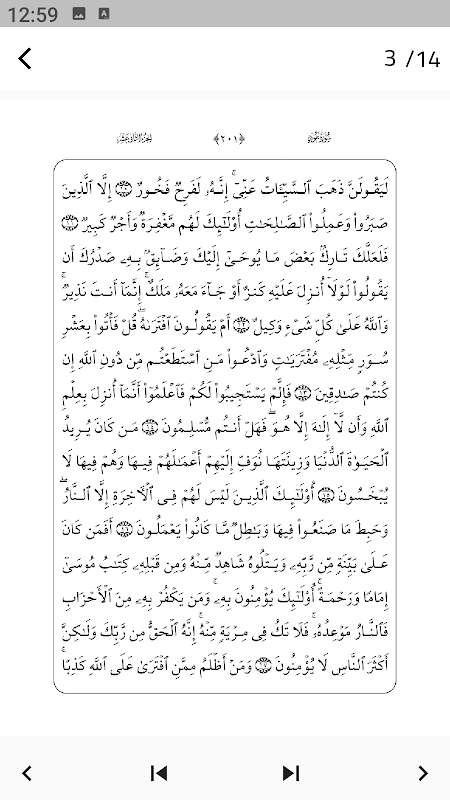 12:59
3 /14
سورة هود
﴿٢٠١﴾
الجزء الثاني عشر
لَيَقُولَنَّ ذَهَبَ ٱلسَّيِّـَٔاتُ عَنِّىٓۚ إِنَّهُۥ لَفَرِحٞ فَخُورٌ ١٠ إِلَّا ٱلَّذِينَ
صَبَرُواْ وَعَمِلُواْ ٱلصَّٰلِحَٰتِ أُوْلَٰٓئِكَ لَهُم مَّغۡفِرَةٞ وَأَجۡرٞ كَبِيرٞ ١١
فَلَعَلَّكَ تَارِكُۢ بَعۡضَ مَا يُوحَىٰٓ إِلَيۡكَ وَضَآئِقُۢ بِهِۦ صَدۡرُكَ أَن
يَقُولُواْ لَوۡلَآ أُنزِلَ عَلَيۡهِ كَنزٌ أَوۡ جَآءَ مَعَهُۥ مَلَكٌۚ إِنَّمَآ أَنتَ نَذِيرٞۚ
وَٱللَّهُ عَلَىٰ كُلِّ شَيۡءٖ وَكِيلٌ ١٢ أَمۡ يَقُولُونَ ٱفۡتَرَىٰهُۖ قُلۡ فَأۡتُواْ بِعَشۡرِ
سُوَرٖ مِّثۡلِهِۦ مُفۡتَرَيَٰتٖ وَٱدۡعُواْ مَنِ ٱسۡتَطَعۡتُم مِّن دُونِ ٱللَّهِ إِن
كُنتُمۡ صَٰدِقِينَ ١٣ فَإِلَّمۡ يَسۡتَجِيبُواْ لَكُمۡ فَٱعۡلَمُوٓاْ أَنَّمَآ أُنزِلَ بِعِلۡمِ
ٱللَّهِ وَأَن لَّآ إِلَٰهَ إِلَّا هُوَۖ فَهَلۡ أَنتُم مُّسۡلِمُونَ ١٤ مَن كَانَ يُرِيدُ
ٱلۡحَيَوٰةَ ٱلدُّنۡيَا وَزِينَتَهَا نُوَفِّ إِلَيۡهِمۡ أَعۡمَٰلَهُمۡ فِيهَا وَهُمۡ فِيهَا لَا
يُبۡخَسُونَ ١٥ أُوْلَٰٓئِكَ ٱلَّذِينَ لَيۡسَ لَهُمۡ فِي ٱلۡأٓخِرَةِ إِلَّا ٱلنَّارُۖ
وَحَبِطَ مَا صَنَعُواْ فِيهَا وَبَٰطِلٞ مَّا كَانُواْ يَعۡمَلُونَ ١٦ أَفَمَن كَانَ
عَلَىٰ بَيِّنَةٖ مِّن رَّبِّهِۦ وَيَتۡلُوهُ شَاهِدٞ مِّنۡهُ وَمِن قَبۡلِهِۦ كِتَٰبُ مُوسَىٰٓ
إِمَامٗا وَرَحۡمَةًۚ أُوْلَٰٓئِكَ يُؤۡمِنُونَ بِهِۦۚ وَمَن يَكۡفُرۡ بِهِۦ مِنَ ٱلۡأَحۡزَابِ
فَٱلنَّارُ مَوۡعِدُهُۥۚ فَلَا تَكُ فِي مِرۡيَةٖ مِّنۡهُۚ إِنَّهُ ٱلۡحَقُّ مِن رَّبِّكَ وَلَٰكِنَّ
أَكۡثَرَ ٱلنَّاسِ لَا يُؤۡمِنُونَ ١٧ وَمَنۡ أَظۡلَمُ مِمَّنِ ٱفۡتَرَىٰ عَلَى ٱللَّهِ كَذِبًاۚ